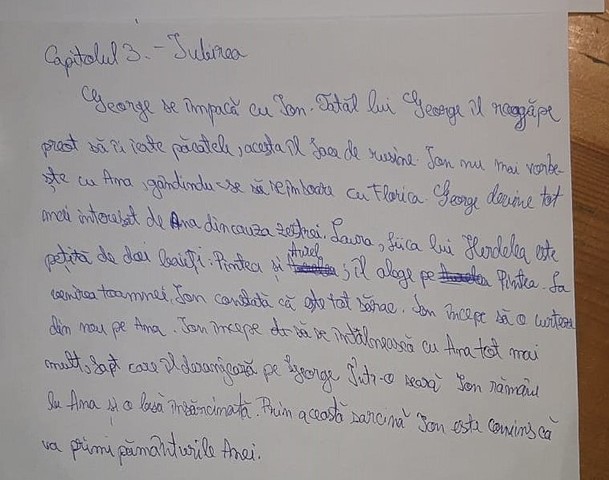 Capitolul 3. - Iubirea
George se împacă cu Ion. Tatăl lui George îl roagă pe
preot să îi ierte păcatele, acesta îl face de rusine. Ion nu mai vorbe-
ște cu Ana, gândindu-se să se îmboare cu Florica. George devine tot
mai interesat de Ana din cauza zestrei. Laura, fiica lui Herdelea este
pețită de doi baieți. Pintea și Aurel; îl alege pe Pintea. La
venirea toamnei. Ion constată că este tot sărac. Ion începe să o curteze
din nou pe Ana. Ion incepe să se întâlnească cu Ana tot mai
mult, fapt care îl deranjează pe George. Într-o seară Ion rămâne
la Ana și o lasă însărcinată. Prin această sarcină Ion este convins că
va primi pământurile Anei.